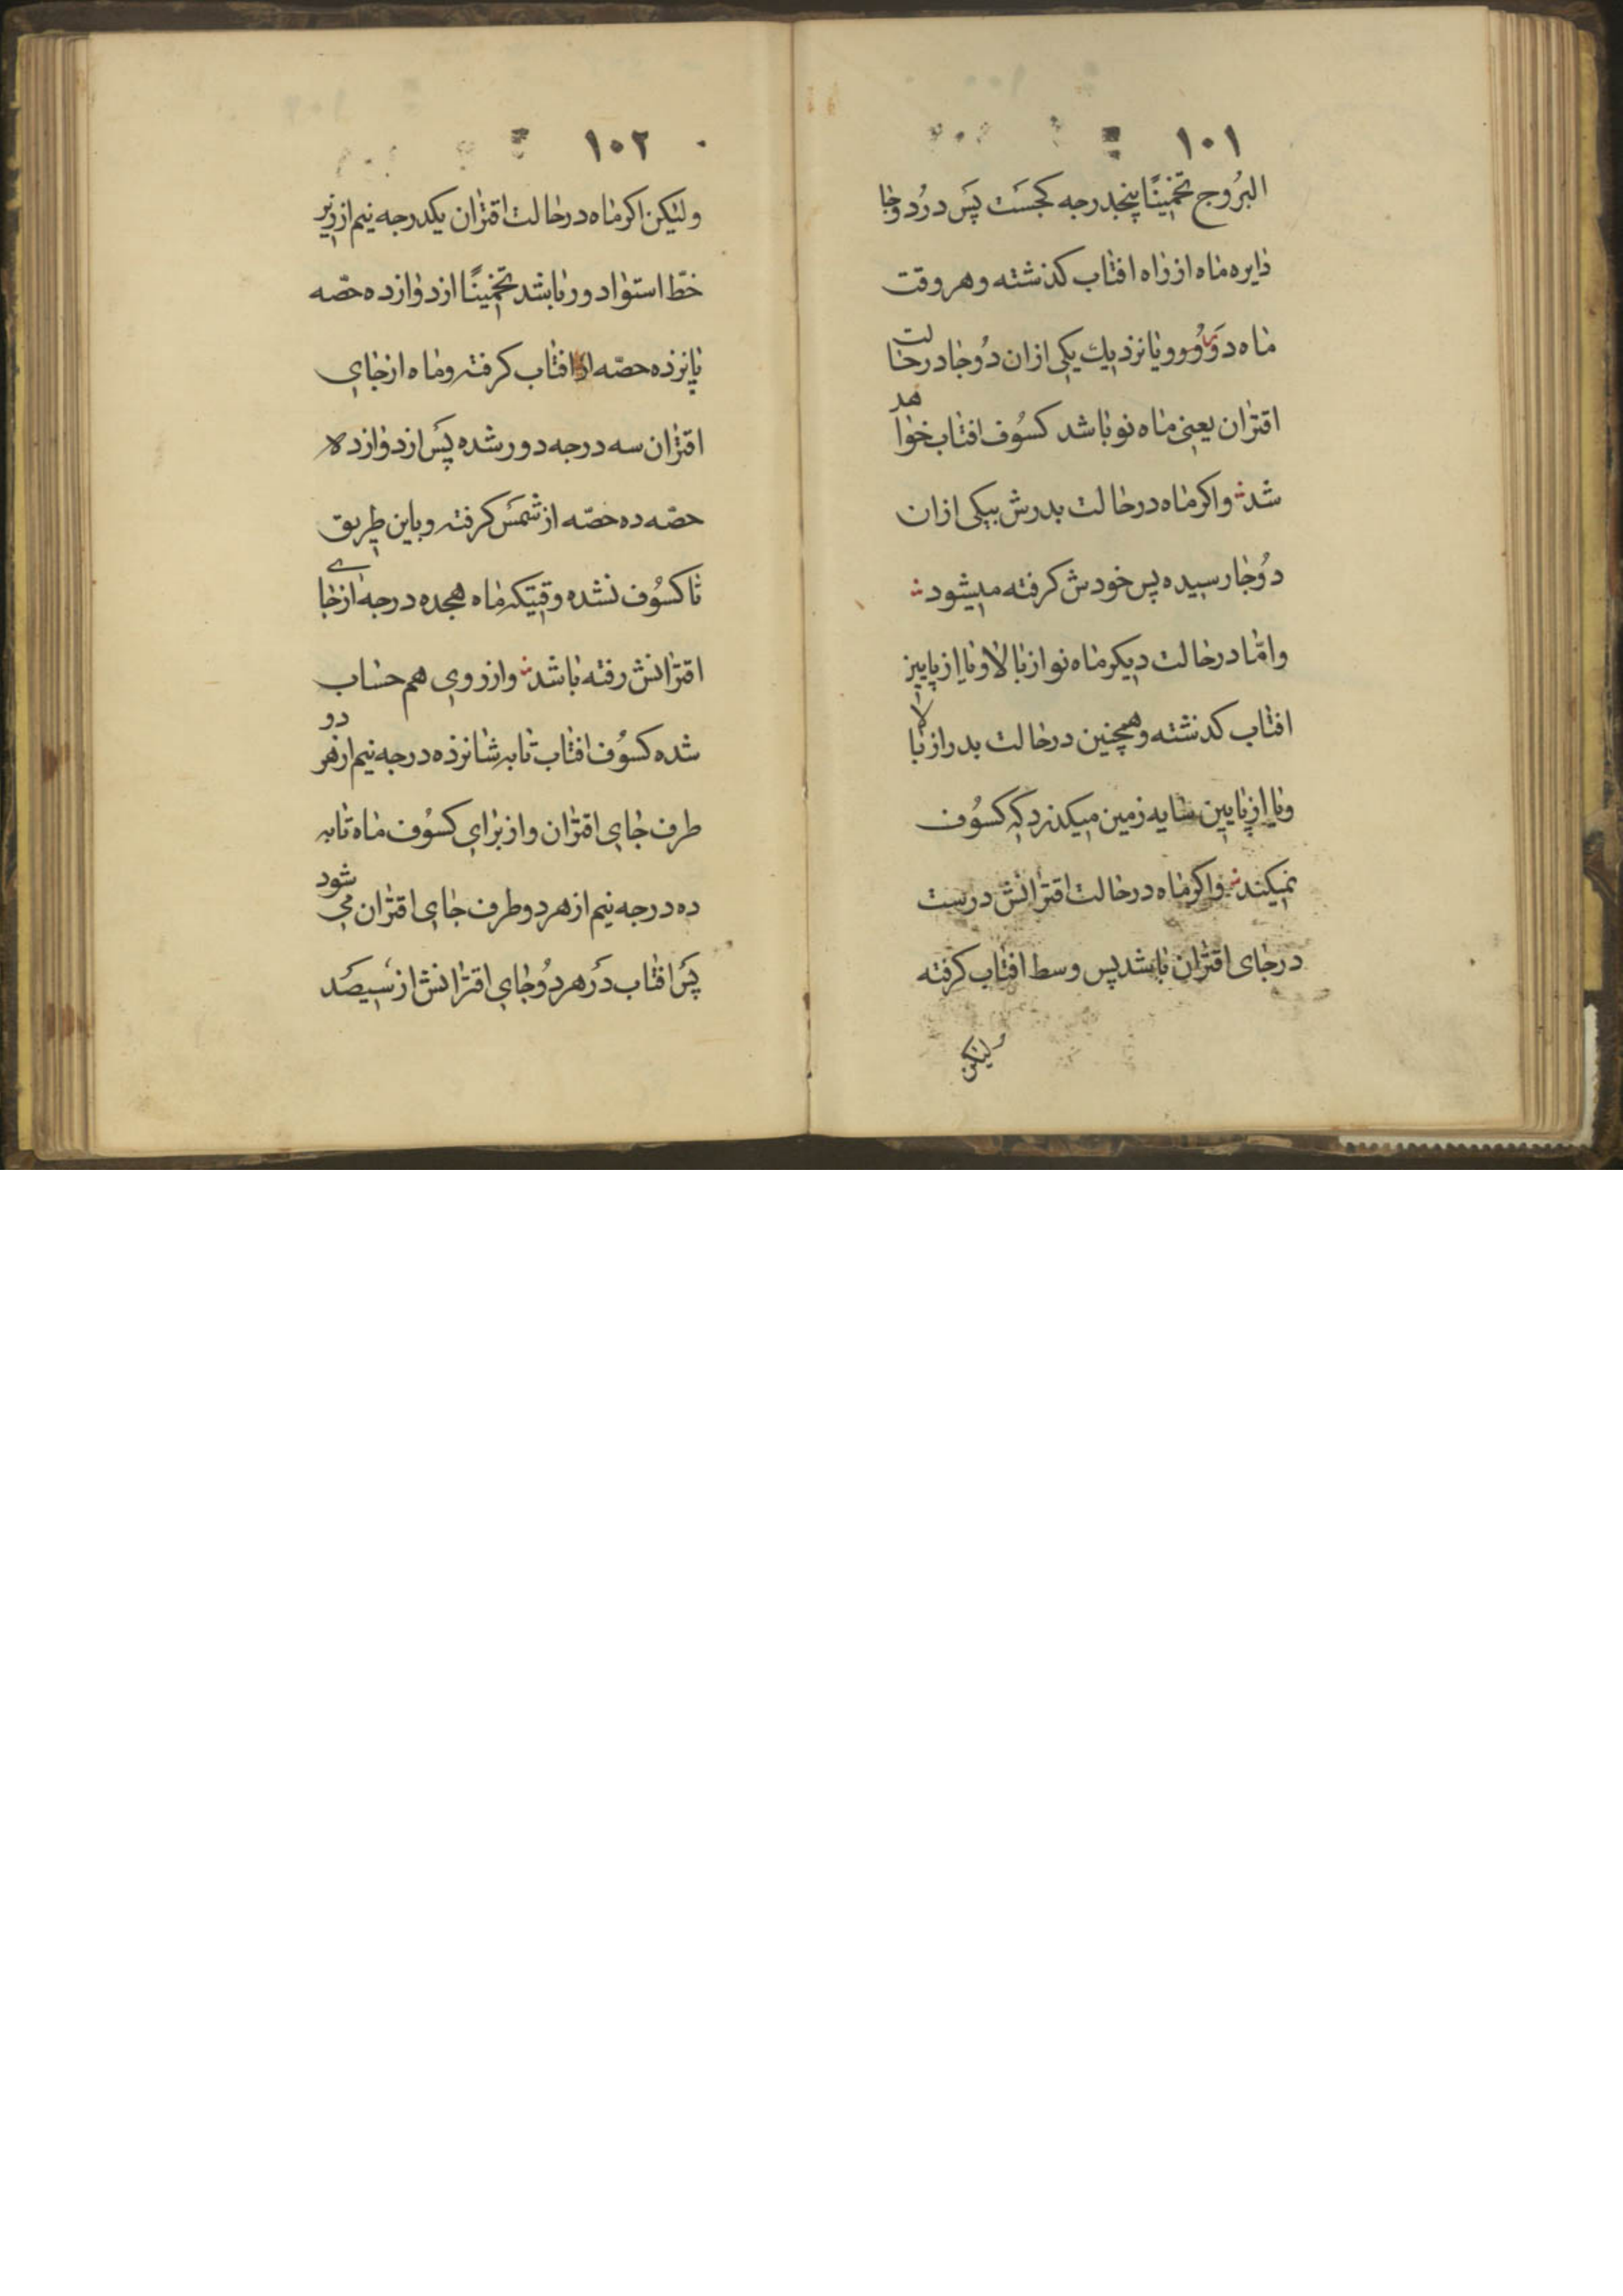 ١٠١
البرُوج تخمینًا پنجدرجه کجست پس در دوجا
دایره ماه از راه افتاب کذشته و هر وقت
ماه در و یا نزدیك یکی ازان دُوجا در حالت
اقتران یعنی ماه نو باشد کسُوف افتاب خواهد
شد و اکر ماه در حالت بدرش بیکی ازان
دُوجا رسیده پس خودش کرفته میشود
و امّا در حالت دیکر ماه نو از بالا و یا از پایین
افتاب کذشته و همچنین در حالت بدر از بالا
و یا از پایین سایه زمین میکذرد که کسُوف
نمیکند و اکر ماه در حالت اقترانش درست
در جای اقتران باشد پس وسط افتاب کرفته
ولیکن
١٠٢
ولیکن اکر ماه در حالت اقتران یکدرجه نیم از زیر
خطّ استوا دور باشد تخمینًا از دوازده حصّه
پانزده حصّه از افتاب کرفته و ماه از جای
اقتران سه درجه دور شده پس از دوازده
حصّه ده حصّه از شمس کرفته و باین طریق
تا کسُوف نشده وقتیکه ماه هجده درجه از جای
اقترانش رفته باشد و از روی هم حساب
شده کسُوف افتاب تا به شانزده درجه نیم از هر دو
طرف جای اقتران و از برای کسوُف ماه تا به
ده درجه نیم از هر دو طرف جای اقتران می شود
پس افتاب در هر دُوجای اقترانش از سیصد